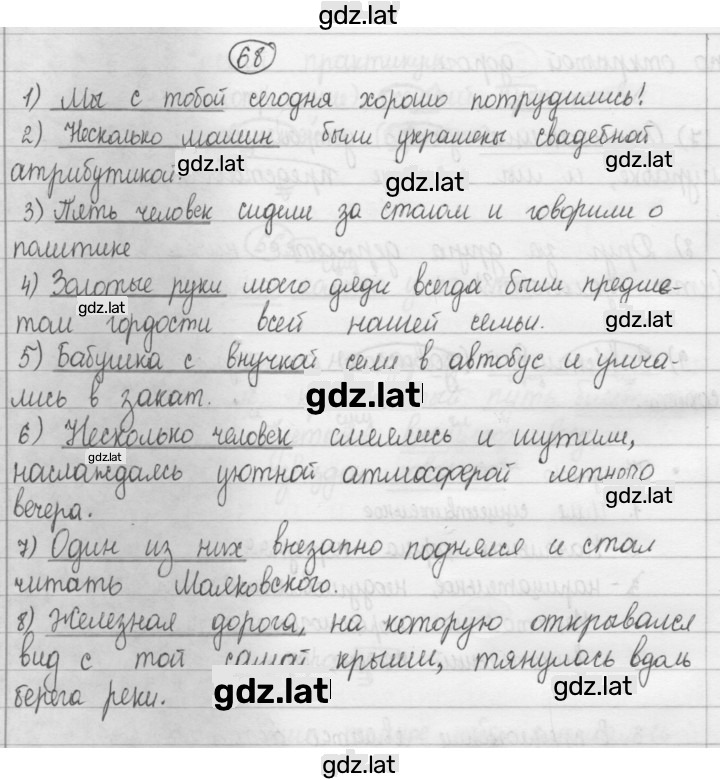 gdz.lat
68
1) Мы с тобой сегодня хорошо потрудились!
2) Несколько машин были украшены свадебной
gdz.lat
gdz.lat
атрибутикой.
gdz.lat
3) Пять человек сидели за столом и говорили о
политике
4) Золотые руки моего дяди всегда были предме-
gdz.lat
том гордости всей нашей семьи.
gdz.lat
5) Бабушка с внучкой сели в автобус и умча-
лись в закат.
gdz.lat
6) Несколько человек смеялись и шутили,
gdz.lat
наслаждаясь уютной атмосферой летнего
gdz.lat
вечера.
7) Один из них внезапно поднялся и стал
читать Маяковского.
8) Железная дорога, на которую открывался
вид с той самой крыши, тянулась вдоль
gdz.lat
gdz.lat
берега реки.
gdz.lat